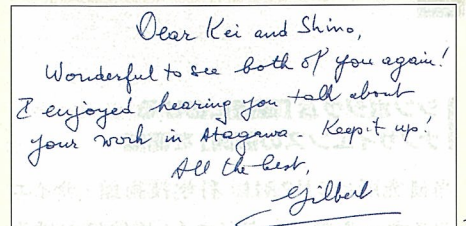 Dear Kei and Shino,
Wonderful to see both of you again!
I enjoyed hearing you talk about
your work in Atagawa. Keep it up!
All the best,
Gilbert